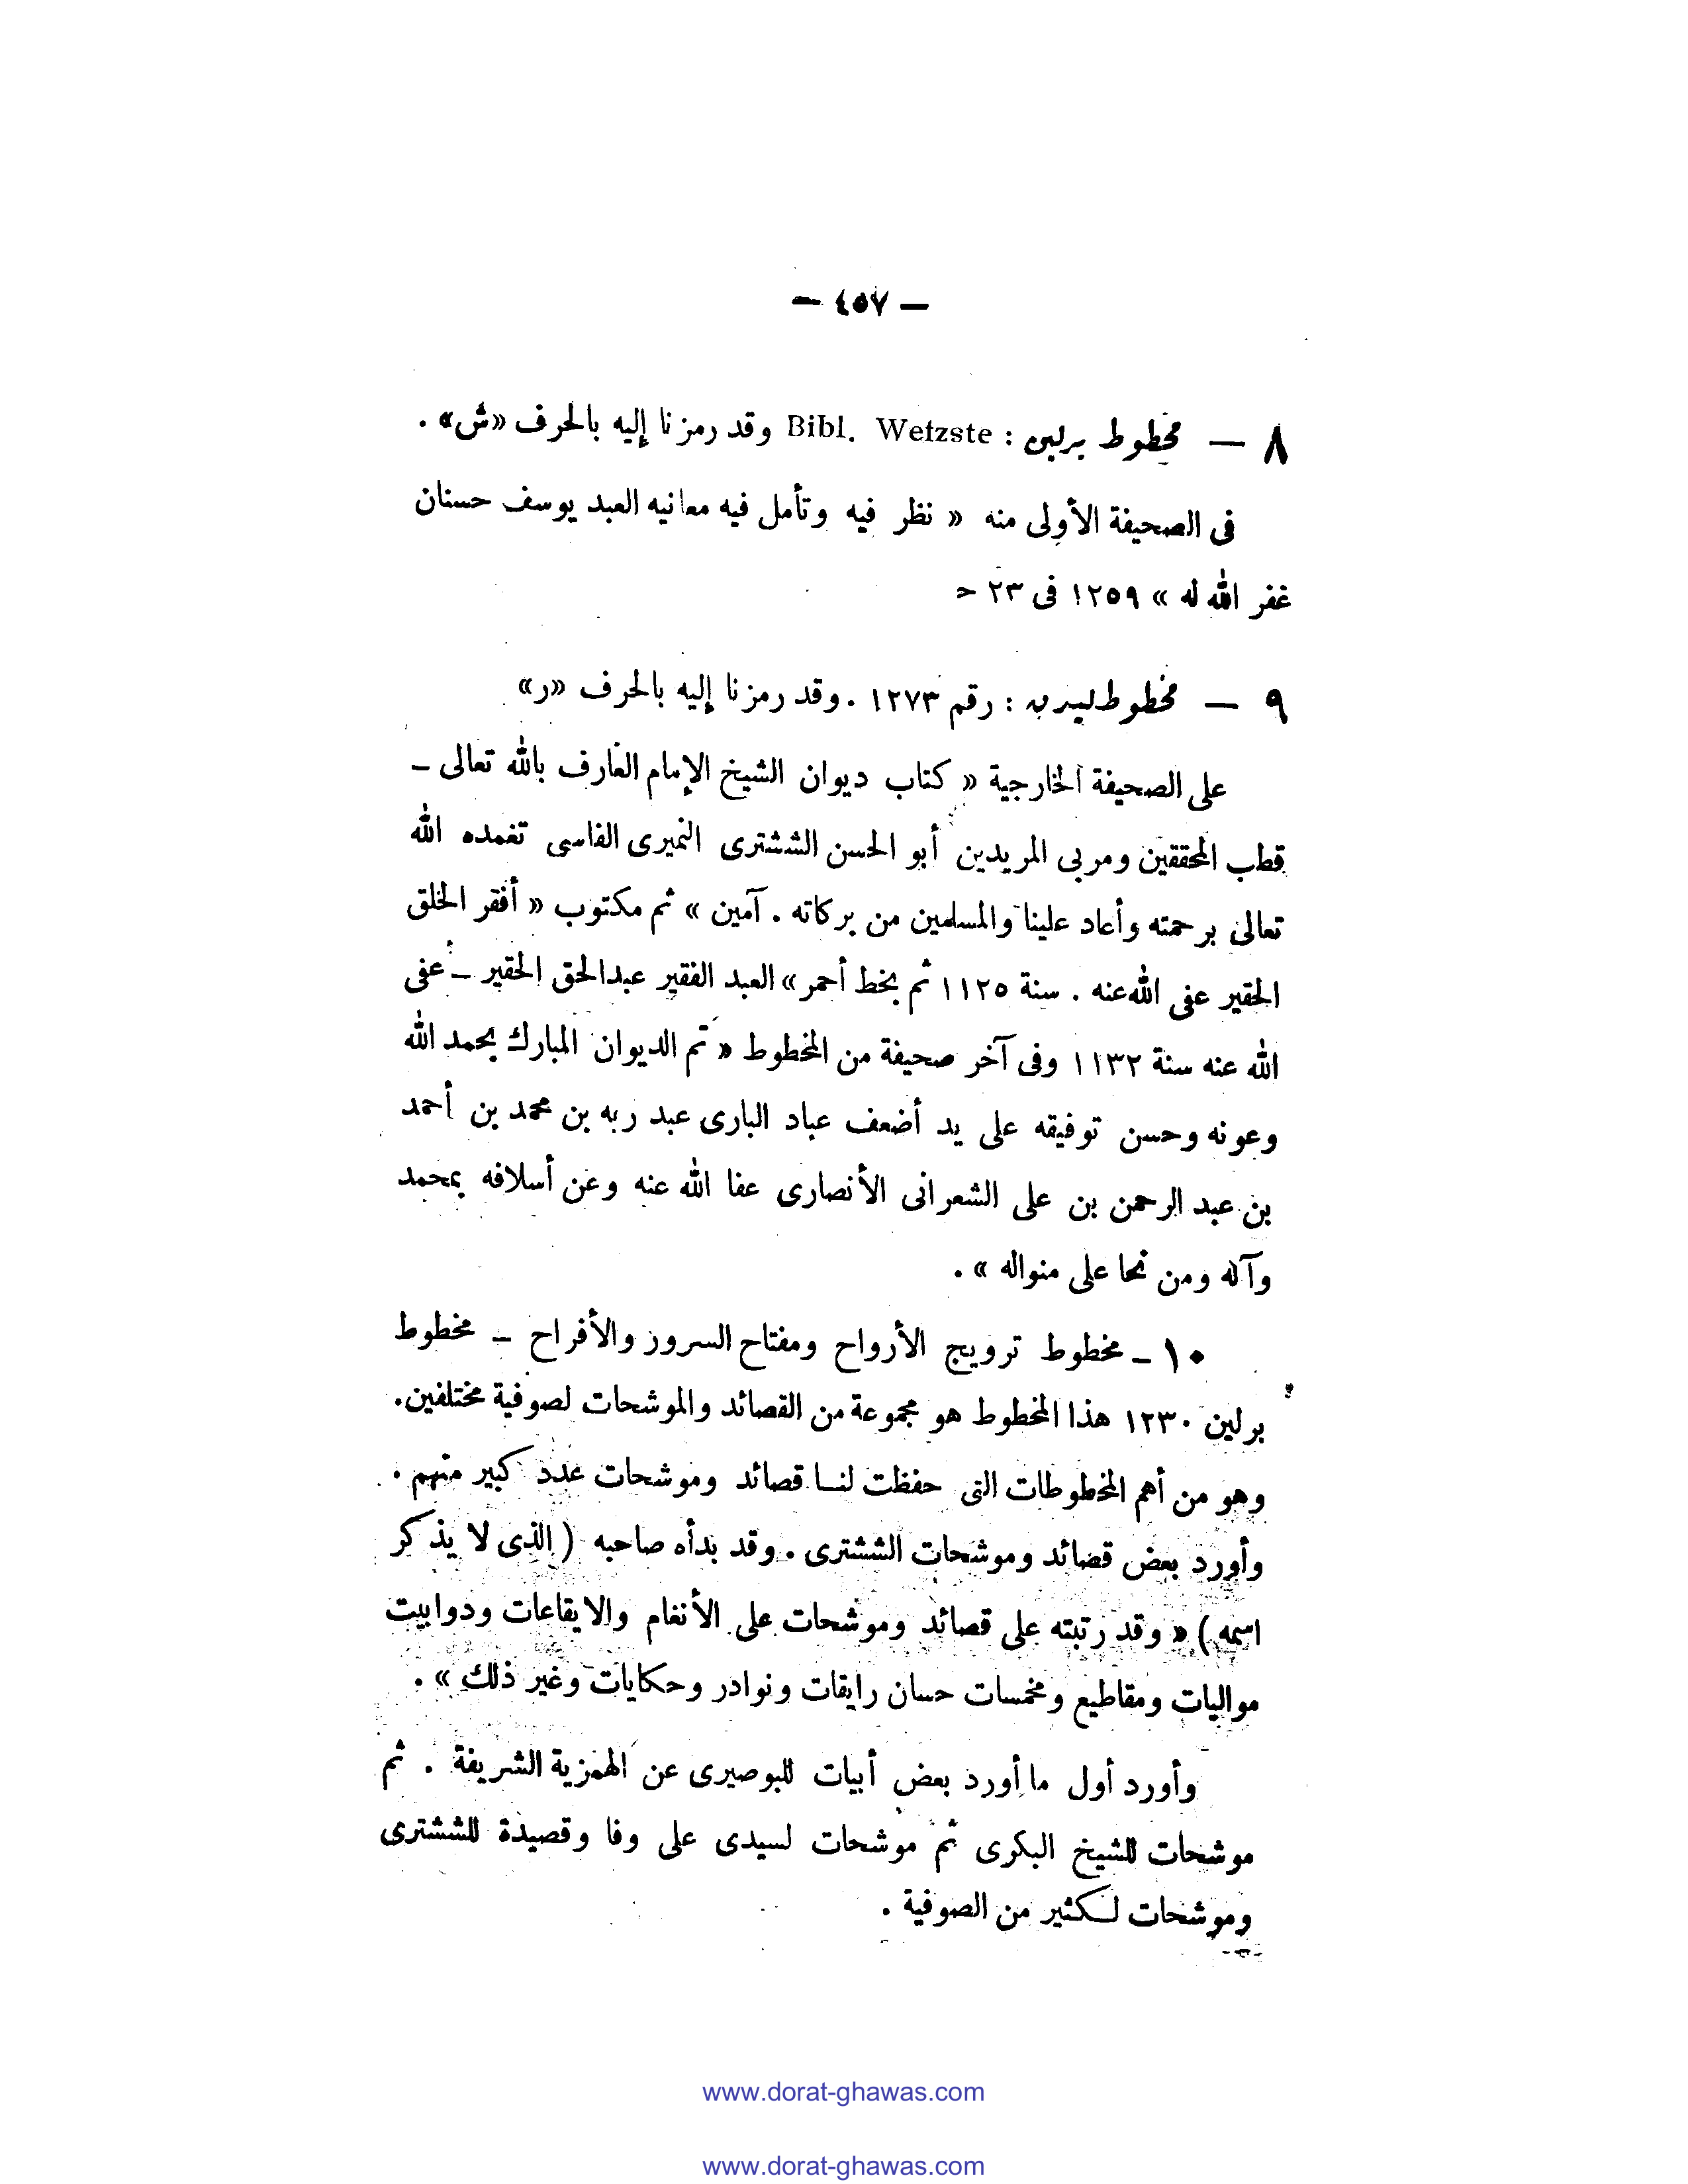 — ٤٥٧ —
٨ — مخطوط برلين : Bibl. Wetzste وقد رمزنا إليه بالحرف «ش» .
فى الصحيفة الأولى منه « نظر فيه وتأمل فيه معانيه العبد يوسف حسنان
غفر الله له » ١٢٥٩ فى ٢٣ ح
٩ — مخطوط ليدن : رقم ١٢٧٣ . وقد رمزنا إليه بالحرف «ر»
على الصحيفة الخارجية « كتاب ديوان الشيخ الإمام العارف بالله تعالى –
قطب المحققين ومربى المريدين أبو الحسن الششترى النميرى الفاسى تغمده الله
تعالى برحمته وأعاد علينا والمسلمين من بركاته . آمين » ثم مكتوب « أفقر الخلق
الحقير عفى الله عنه . سنة ١١٢٥ ثم بخط أحمر » العبد الفقير عبدالحق الحقير – عفى
الله عنه سنة ١١٣٢ وفى آخر صحيفة من المخطوط « تم الديوان المبارك بحمد الله
وعونه وحسن توفيقه على يد أضعف عباد البارى عبد ربه بن محمد بن أحمد
بن عبد الرحمن بن على الشعرانى الأنصارى عفا الله عنه وعن أسلافه بمحمد
وآله ومن نحا على منواله » .
١٠ – مخطوط ترويج الأرواح ومفتاح السرور والأفراح – مخطوط
برلين ١٢٣٠ هذا المخطوط هو مجموعة من القصائد والموشحات لصوفية مختلفين.
وهو من أهم المخطوطات التى حفظت لنا قصائد وموشحات عدد كبير منهم .
وأورد بعض قصائد وموشحات الششترى . وقد بدأه صاحبه ( الذى لا يذكر
اسمه ) « وقد رتبته على قصائد وموشحات على الأنغام والايقاعات ودوابيت
مواليات ومقاطيع ومخمسات حسان رايقات ونوادر وحكايات وغير ذلك » .
وأورد أول ما أورد بعض أبيات للبوصيرى عن الهمزية الشريفة . ثم
موشحات للشيخ البكرى ثم موشحات لسيدى على وفا وقصيدة للششترى
وموشحات لكثير من الصوفية .
www.dorat-ghawas.com
www.dorat-ghawas.com